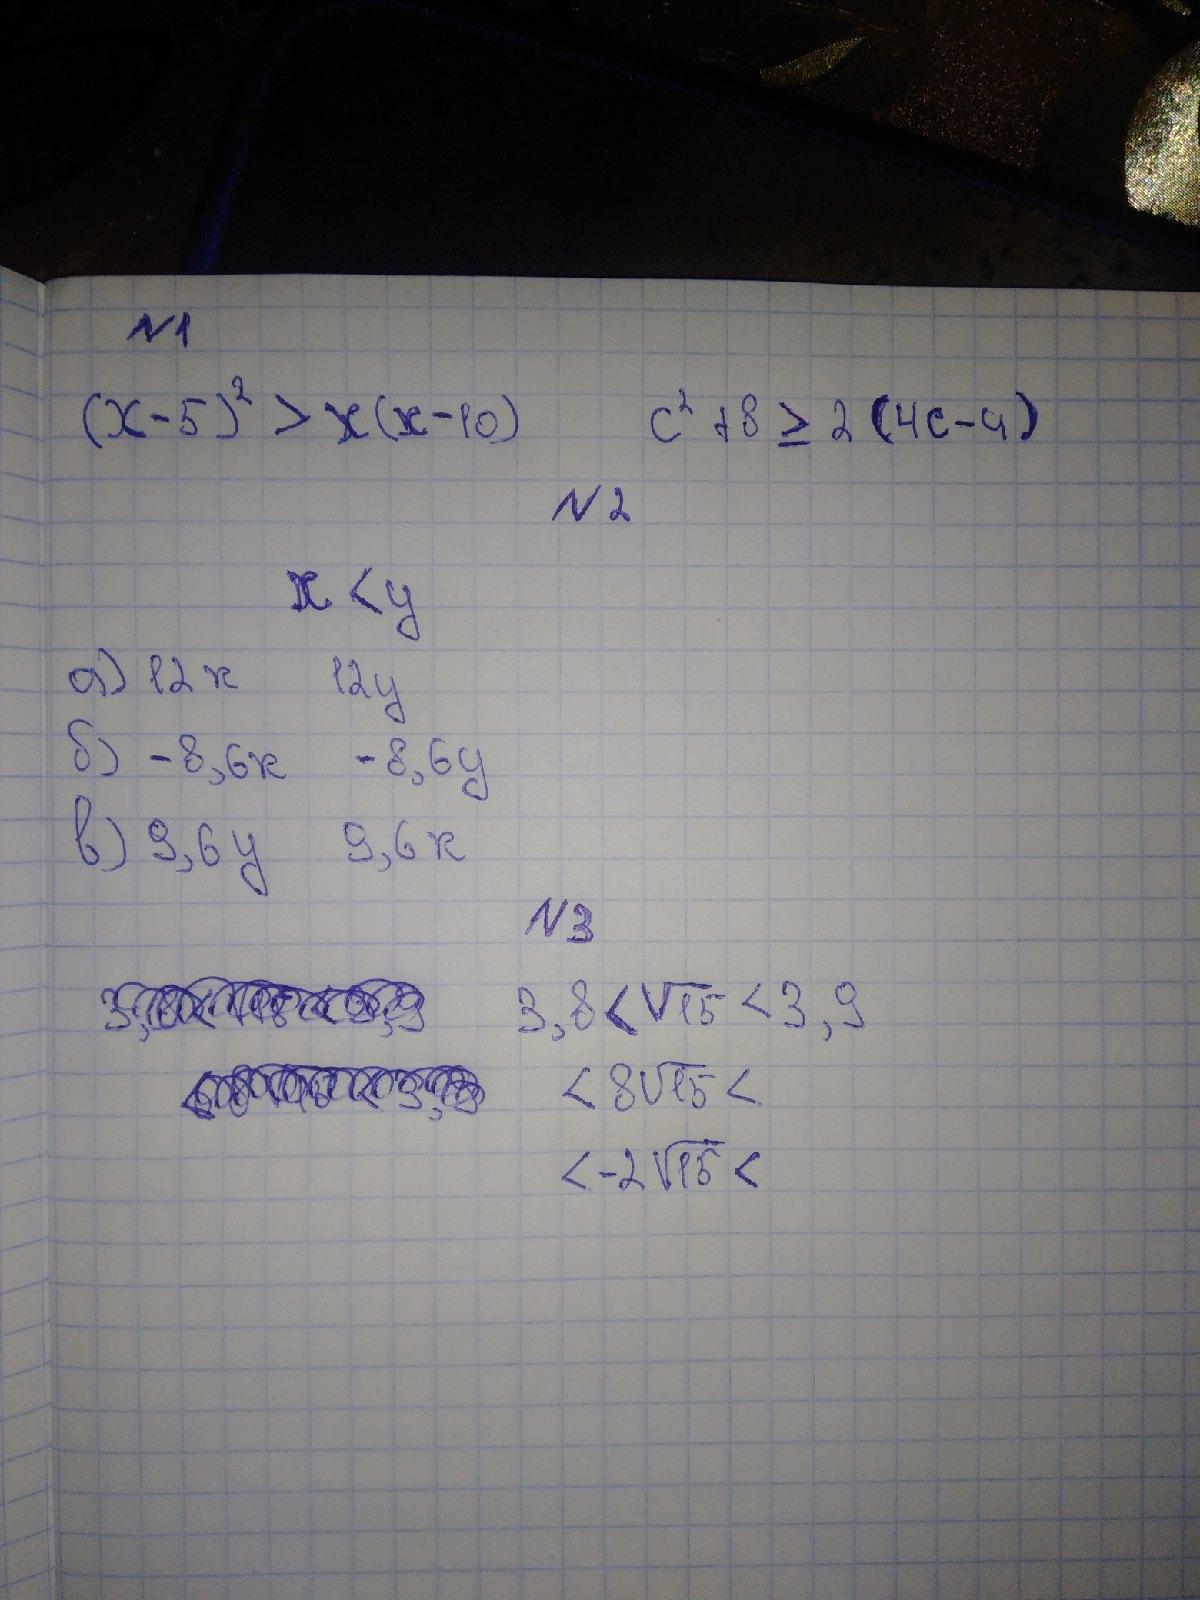 N1
(x-5)² > x(x-10) c² + 8 ≥ 2(4c-4)
N2
x < y
а) 12x 12y
б) -8,6x -8,6y
в) 9,6y 9,6x
N3
3,8 < √15 < 3,9
< 8√15 <
< -2√15 <